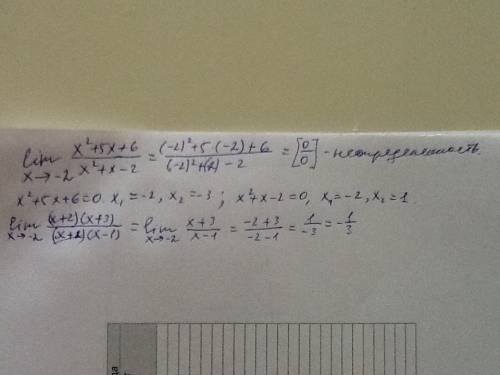 lim x→-2 (x²+5x+6)/(x²+x-2) = ((-2)²+5·(-2)+6)/((-2)²+(-2)-2) = [0/0] - неопределенность.
x²+5x+6=0. x₁=-2, x₂=-3; x²+x-2=0, x₁=-2, x₂=1.
lim x→-2 ((x+2)(x+3))/((x+2)(x-1)) = lim x→-2 (x+3)/(x-1) = (-2+3)/(-2-1) = 1/-3 = -1/3